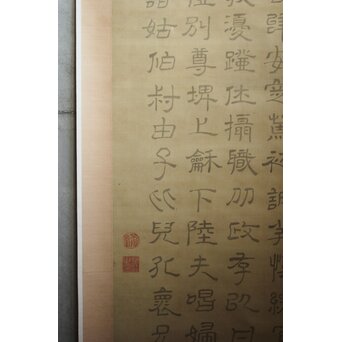 辭安定篤初誠美慎終
優登仕攝職从政存以甘
別尊卑上龢下睦夫唱婦
諸姑伯叔由子比兒孔褱兄